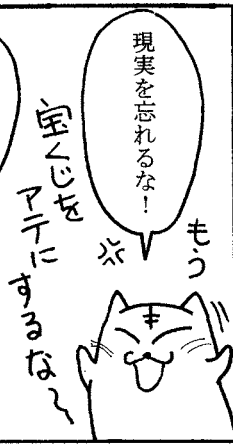 現実を忘れるな！
もう
宝くじを
アテに
するな〜